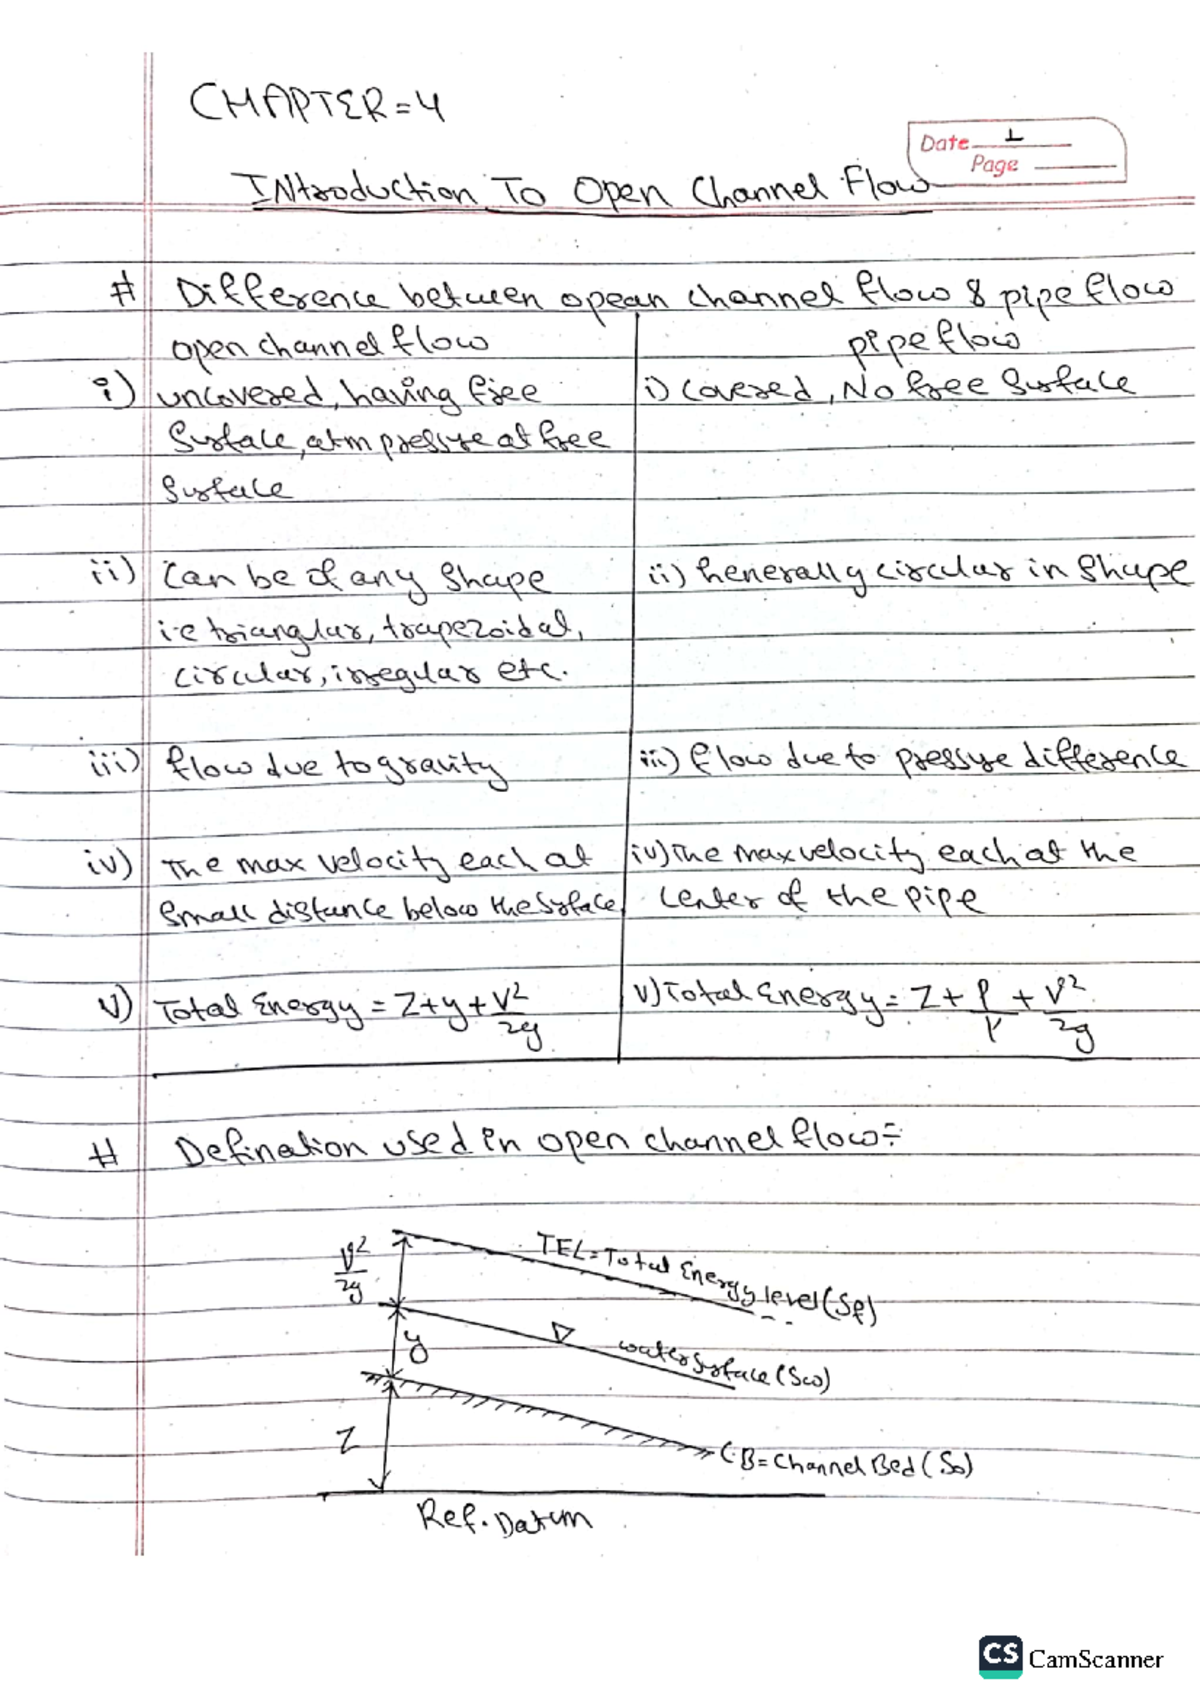 CHAPTER=4
Date 1
Page
INtroduction To Open Channel Flow
# Difference between opean channel flow & pipe flow
open channel flow
pipe flow
i) uncovered, having free
surface, atm pressure at free
surface
i) Covered, No free Surface
ii) Can be of any Shape
i.e triangular, trapezoidal,
circular, irregular etc.
ii) Generally circular in Shape
iii) flow due to gravity
iii) flow due to pressure difference
iv) The max velocity each at
small distance below the surface
iv) The max velocity each at the
center of the pipe
v) Total Energy = Z+y+V²/2g
v) Total Energy = Z+P/γ+V²/2g
# Defination used in open channel flow÷
V²/2g
TEL=Total Energy level (Sf)
y
water surface (Sw)
Z
C.B=Channel Bed (So)
Ref. Datum
CS CamScanner